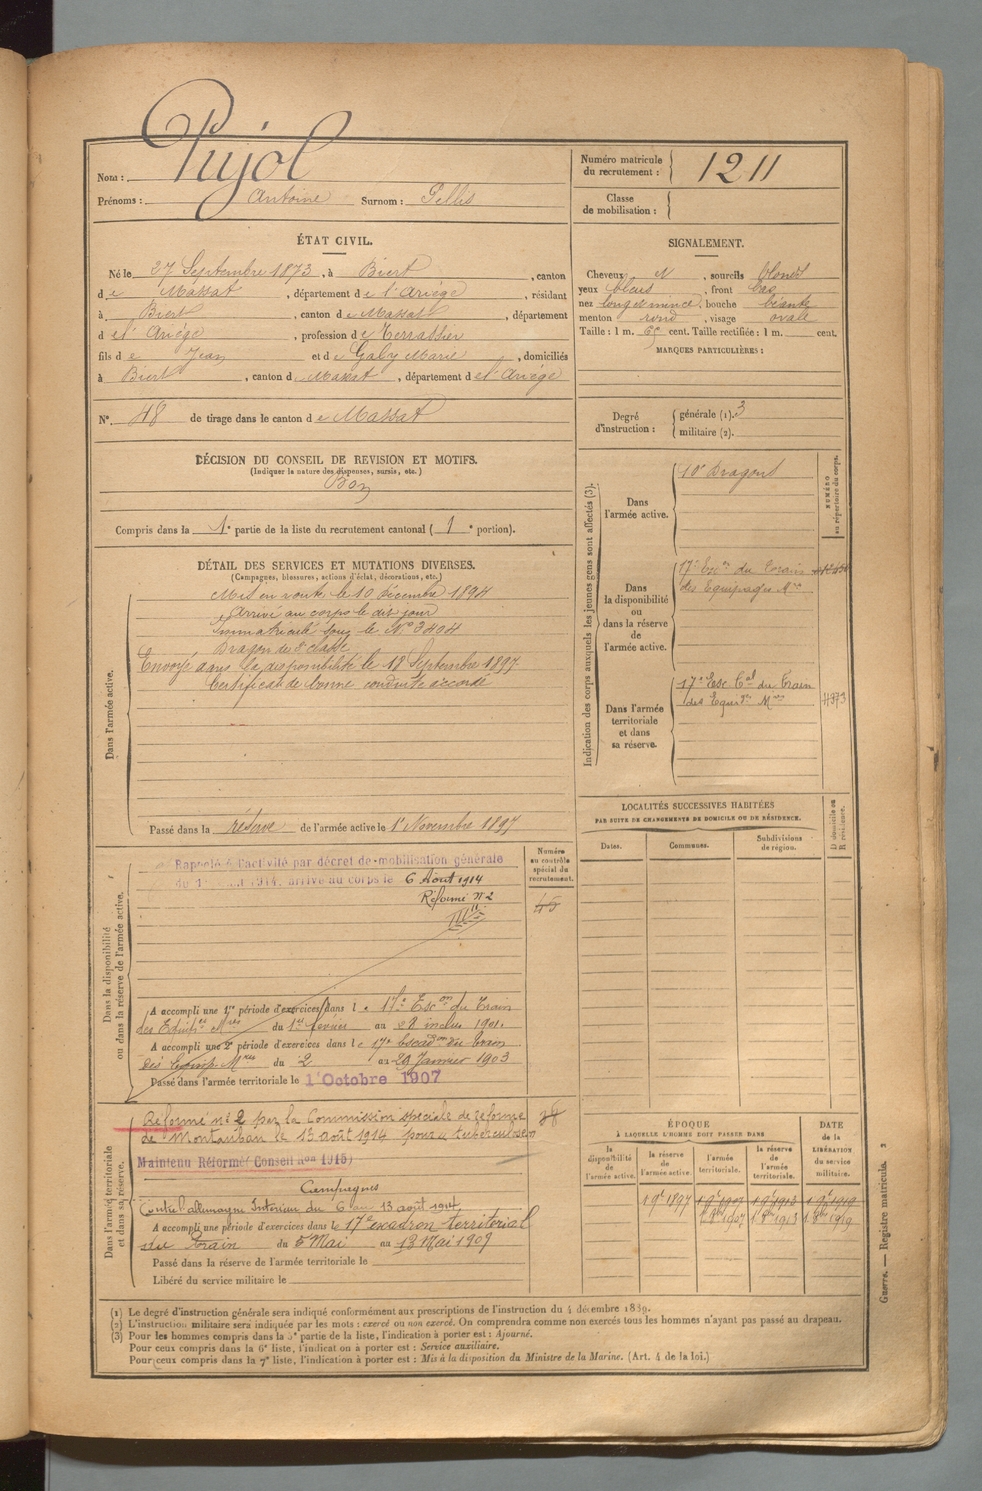 Nom : Pujol
Prénoms : Antoine Surnom : Pellis
Numéro matricule du recrutement : 1211
Classe de mobilisation :
ÉTAT CIVIL.
Né le 27 Septembre 1873, à Biert, canton
de Massat, département de l'Ariège, résidant
à Biert, canton de Massat, département
de l'Ariège, profession de Terrassier
fils de Jean et de Galy Marie, domiciliés
à Biert, canton de Massat, département de l'Ariège
N° 48 de tirage dans le canton de Massat
SIGNALEMENT.
Cheveux N, sourcils blonds
yeux bleus, front bas
nez long et mince, bouche béante
menton rond, visage ovale
Taille : 1 m. 65 cent. Taille rectifiée : 1 m. cent.
MARQUES PARTICULIÈRES :
Degré d'instruction : générale (1). 3
militaire (2).
DÉCISION DU CONSEIL DE REVISION ET MOTIFS.
(Indiquer la nature des dispenses, sursis, etc.)
Bon
Compris dans la 1e partie de la liste du recrutement cantonal (1e portion).
DÉTAIL DES SERVICES ET MUTATIONS DIVERSES.
(Campagnes, blessures, actions d'éclat, décorations, etc.)
Dans l'armée active.
Mis en route le 10 Décembre 1894
Arrivé au corps le dit jour
Immatriculé sous le N° 3404
Dragon de 2e classe
Envoyé dans la disponibilité le 18 Septembre 1897
Certificat de bonne conduite accordé
Passé dans la réserve de l'armée active le 1er Novembre 1897
Indication des corps auxquels les jeunes gens sont affectés (3).
NUMÉRO au répertoire du corps.
Dans l'armée active.
10e Dragons
Dans la disponibilité ou dans la réserve de l'armée active.
17e Escon du Train
des Equipages Mres
Dans l'armée territoriale et dans sa réserve.
17e Esc. Cal du Train
des Equipes Mres
4373
LOCALITÉS SUCCESSIVES HABITÉES
PAR SUITE DE CHANGEMENTS DE DOMICILE OU DE RÉSIDENCE.
Dates. Communes. Subdivisions de région. D domicile ou R résidence.
Dans la disponibilité ou dans la réserve de l'armée active.
Numéro au contrôle spécial du recrutement.
Rappelé à l'activité par décret de mobilisation générale
du 1er août 1914, arrivé au corps le 6 Août 1914
Réformé N° 2
45
A accompli une 1re période d'exercices dans le 17e Escon du Train
des Equipes Mres du 1er février au 28 inclus 1901.
A accompli une 2e période d'exercices dans le 17e Escadon du Train
des Equip. Mres du 2 au 29 Janvier 1903
Passé dans l'armée territoriale le 1er Octobre 1907
Dans l'armée territoriale et dans sa réserve.
Réformé n° 2 par la Commission spéciale de réforme
de Montauban le 13 août 1914 pour tuberculose
Maintenu Réformé (Conseil Ron 1915)
Campagnes
Contre l'allemagne Intérieur du 6 au 13 août 1914
A accompli une période d'exercices dans le 17e escadron territorial
du Train du 5 Mai au 13 Mai 1909
Passé dans la réserve de l'armée territoriale le
Libéré du service militaire le
ÉPOQUE
À LAQUELLE L'HOMME DOIT PASSER DANS
la disponibilité de l'armée active. la réserve de l'armée active. l'armée territoriale. la réserve de l'armée territoriale.
DATE de la LIBÉRATION du service militaire.
1 9e 1897 1 9e 1907 1 9e 1913 1 9e 1919
1 8bre 1907 1 8bre 1913 1 8bre 1919
(1) Le degré d'instruction générale sera indiqué conformément aux prescriptions de l'instruction du 4 décembre 1889.
(2) L'instruction militaire sera indiquée par les mots : exercé ou non exercé. On comprendra comme non exercés tous les hommes n'ayant pas passé au drapeau.
(3) Pour les hommes compris dans la 5e partie de la liste, l'indication à porter est : Ajourné.
Pour ceux compris dans la 6e liste, l'indication à porter est : Service auxiliaire.
Pour ceux compris dans la 7e liste, l'indication à porter est : Mis à la disposition du Ministre de la Marine. (Art. 4 de la loi.)
Guerre. — Registre matricule. 2